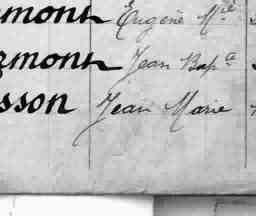 mont Eugène Mie
zmont Jean Bapte
sson Jean Marie